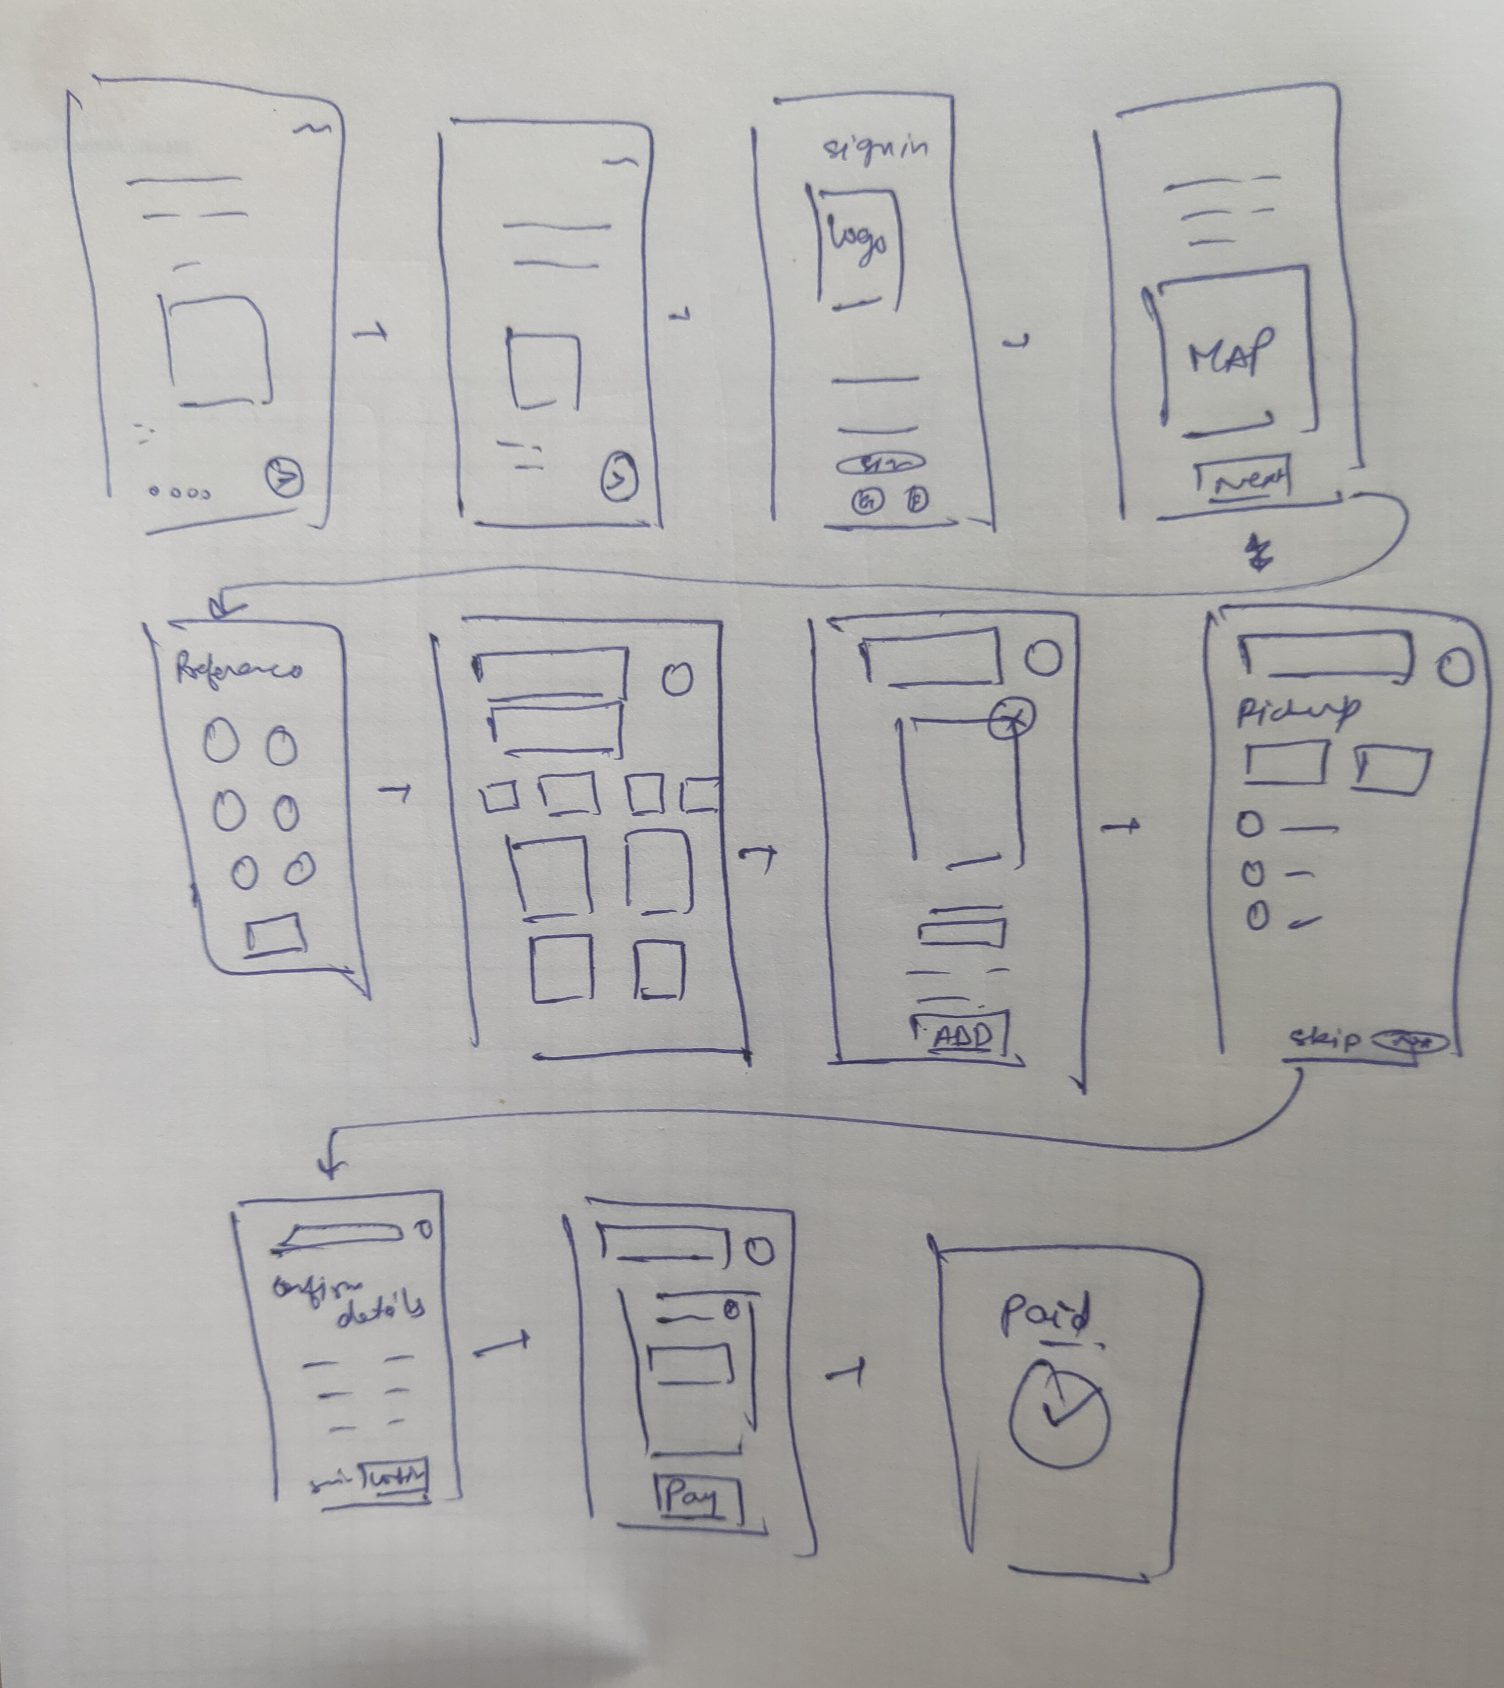 signin
Logo
sign
G
MAP
Next
Preference
X
Pickup
ADD
skip
Confirm
details
Pay
Paid